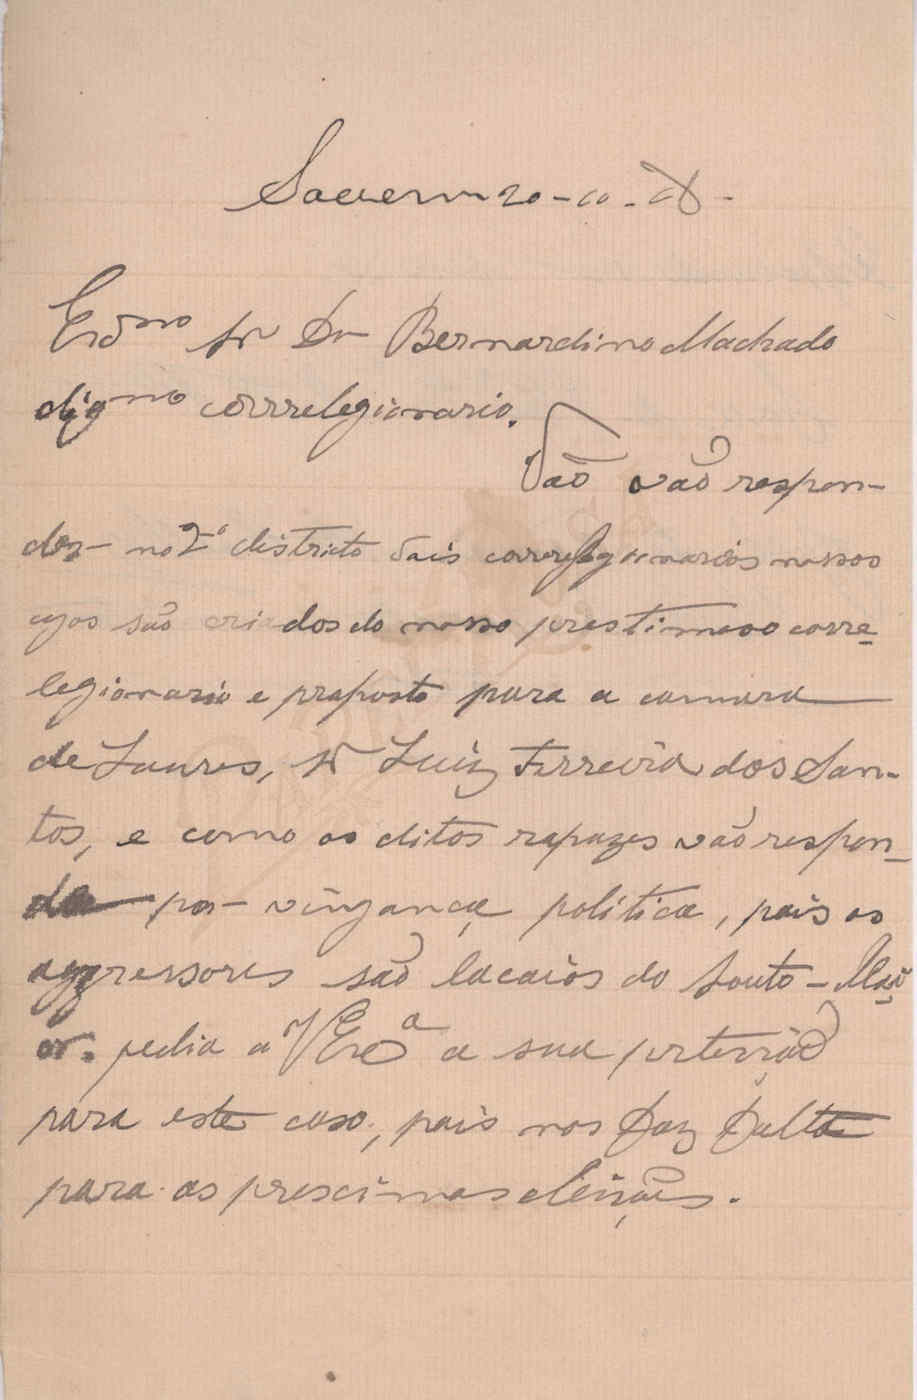 Sacavem 20-10-08-
Exmo Sr Dr Bernardino Machado
digno correlegionario.
Vão vão respon-
der no 2º districto dois correlegionarios nossos
cujos são criados do nosso prestimoso corre-
legionario e proposto para a camara
de Loures, Sr Luiz Ferreira dos San-
tos, e como os ditos rapazes vão respon-
der por vingança politica, pois os
aggressores são lacaios do Souto-Mai-
or. pedia a VExª a sua
para este caso, pois nos faz falta
para as prescimas eleições.